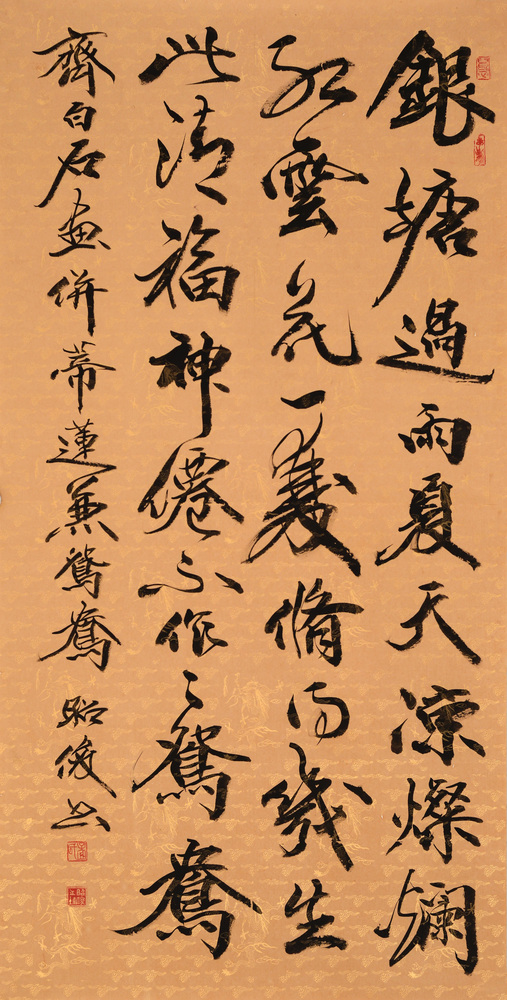 銀塘過雨夏天涼燦爛
紅雲花一雙脩得幾生
此清福神僊不作々鴛鴦
齊白石画併蒂蓮兼鴛鴦 昭俊书